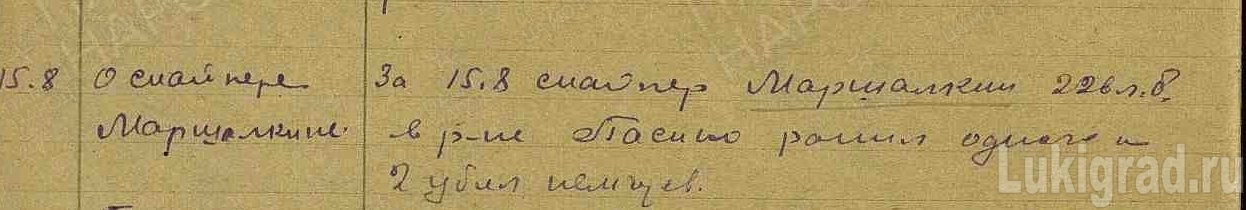 15.8 О снайпере За 15.8 снайпер Маршалкин 226 л.б.
Маршалкине. в р-не Пасино ранил одного и
2 убил немцев.
Lukigrad.ru